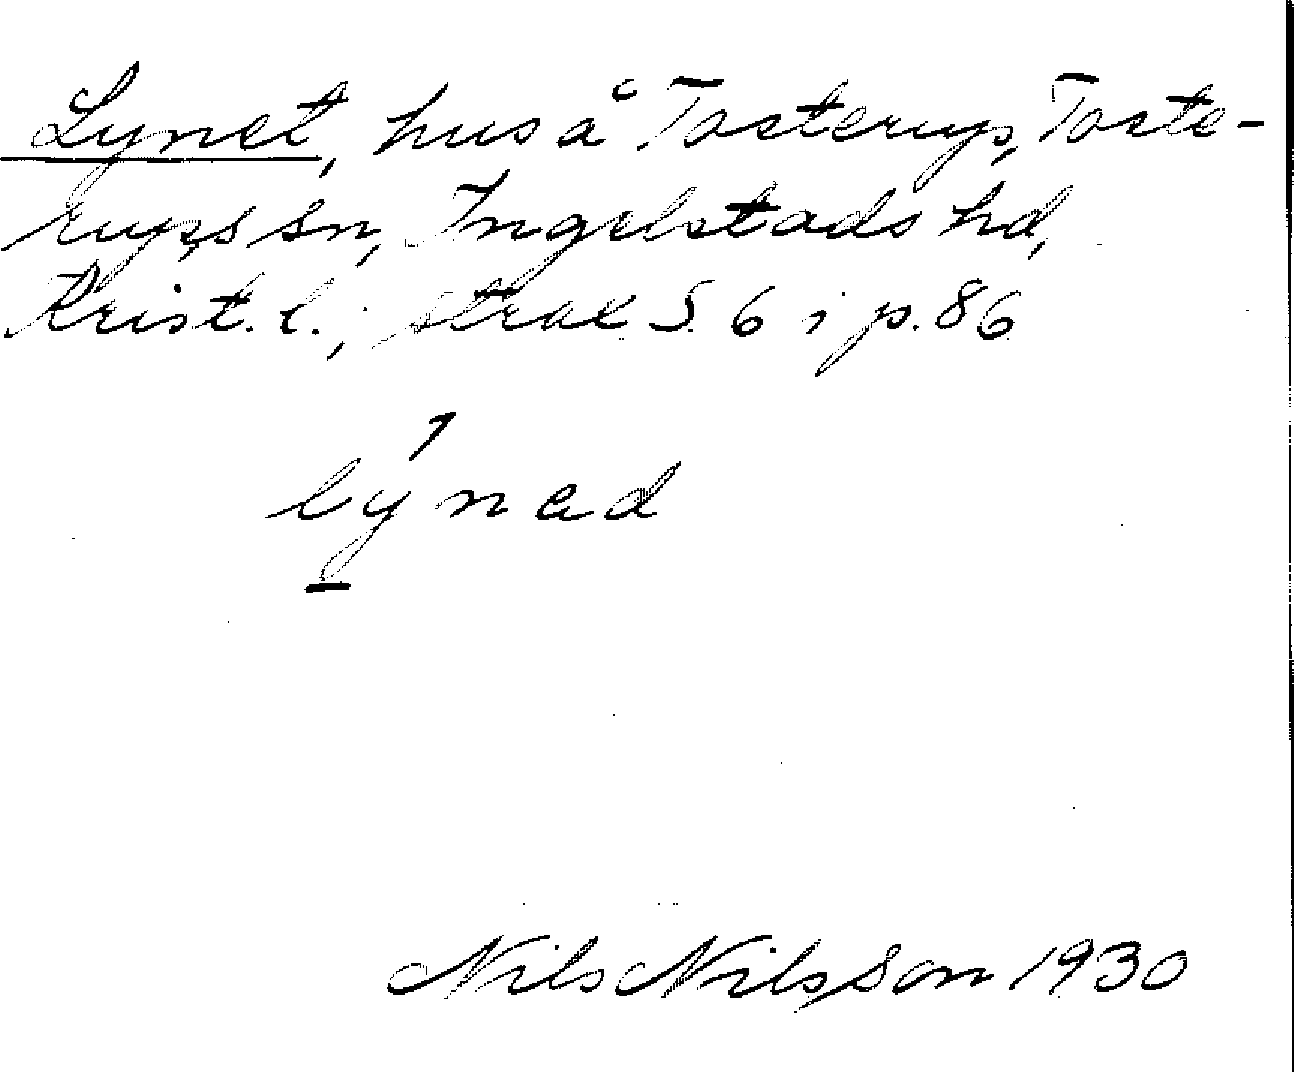 Lynet, hus å Tosterup, Toste-
rups sn, Ingelstads hd,
Krist. l.; strax S. 6 i p. 86
lýnad
Nils Nilsson 1930